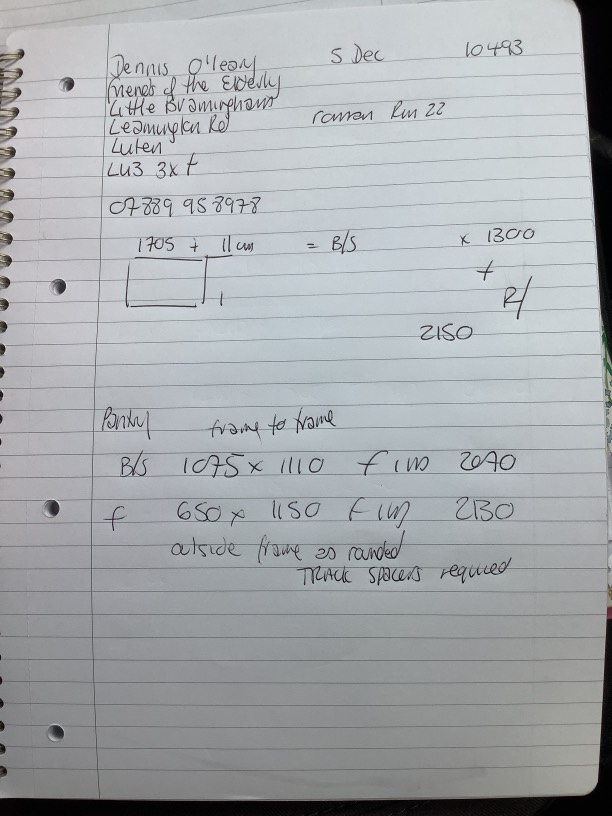 Dennis O'leary 5 Dec 10493
friends of the Elderly
Little Bramingham
Leamington Rd roman Rm 22
Luten
LU3 3x f
07889 958978
1705 + 11cm = B/S x 1300
+
R/
2150
frame to frame
B/S 1075 x 1110 f 2040
f 650 x 1150 f 2130
outside frame as rounded
TRACK SPACERS required